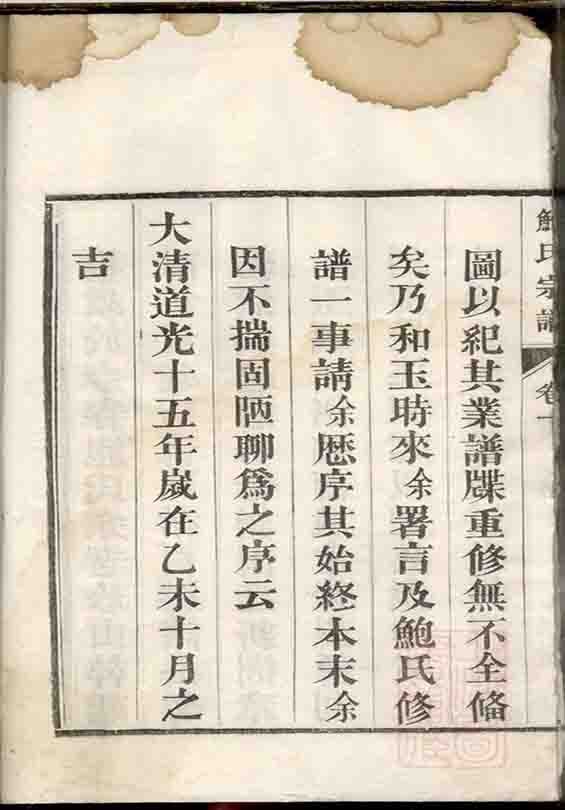 鮑氏宗譜 卷一
圖以紀其業譜牒重修無不全偹
矣乃和玉時來余署言及鮑氏修
譜一事請余歴序其始終本末余
因不揣固陋聊爲之序云
大清道光十五年歲在乙未十月之
吉